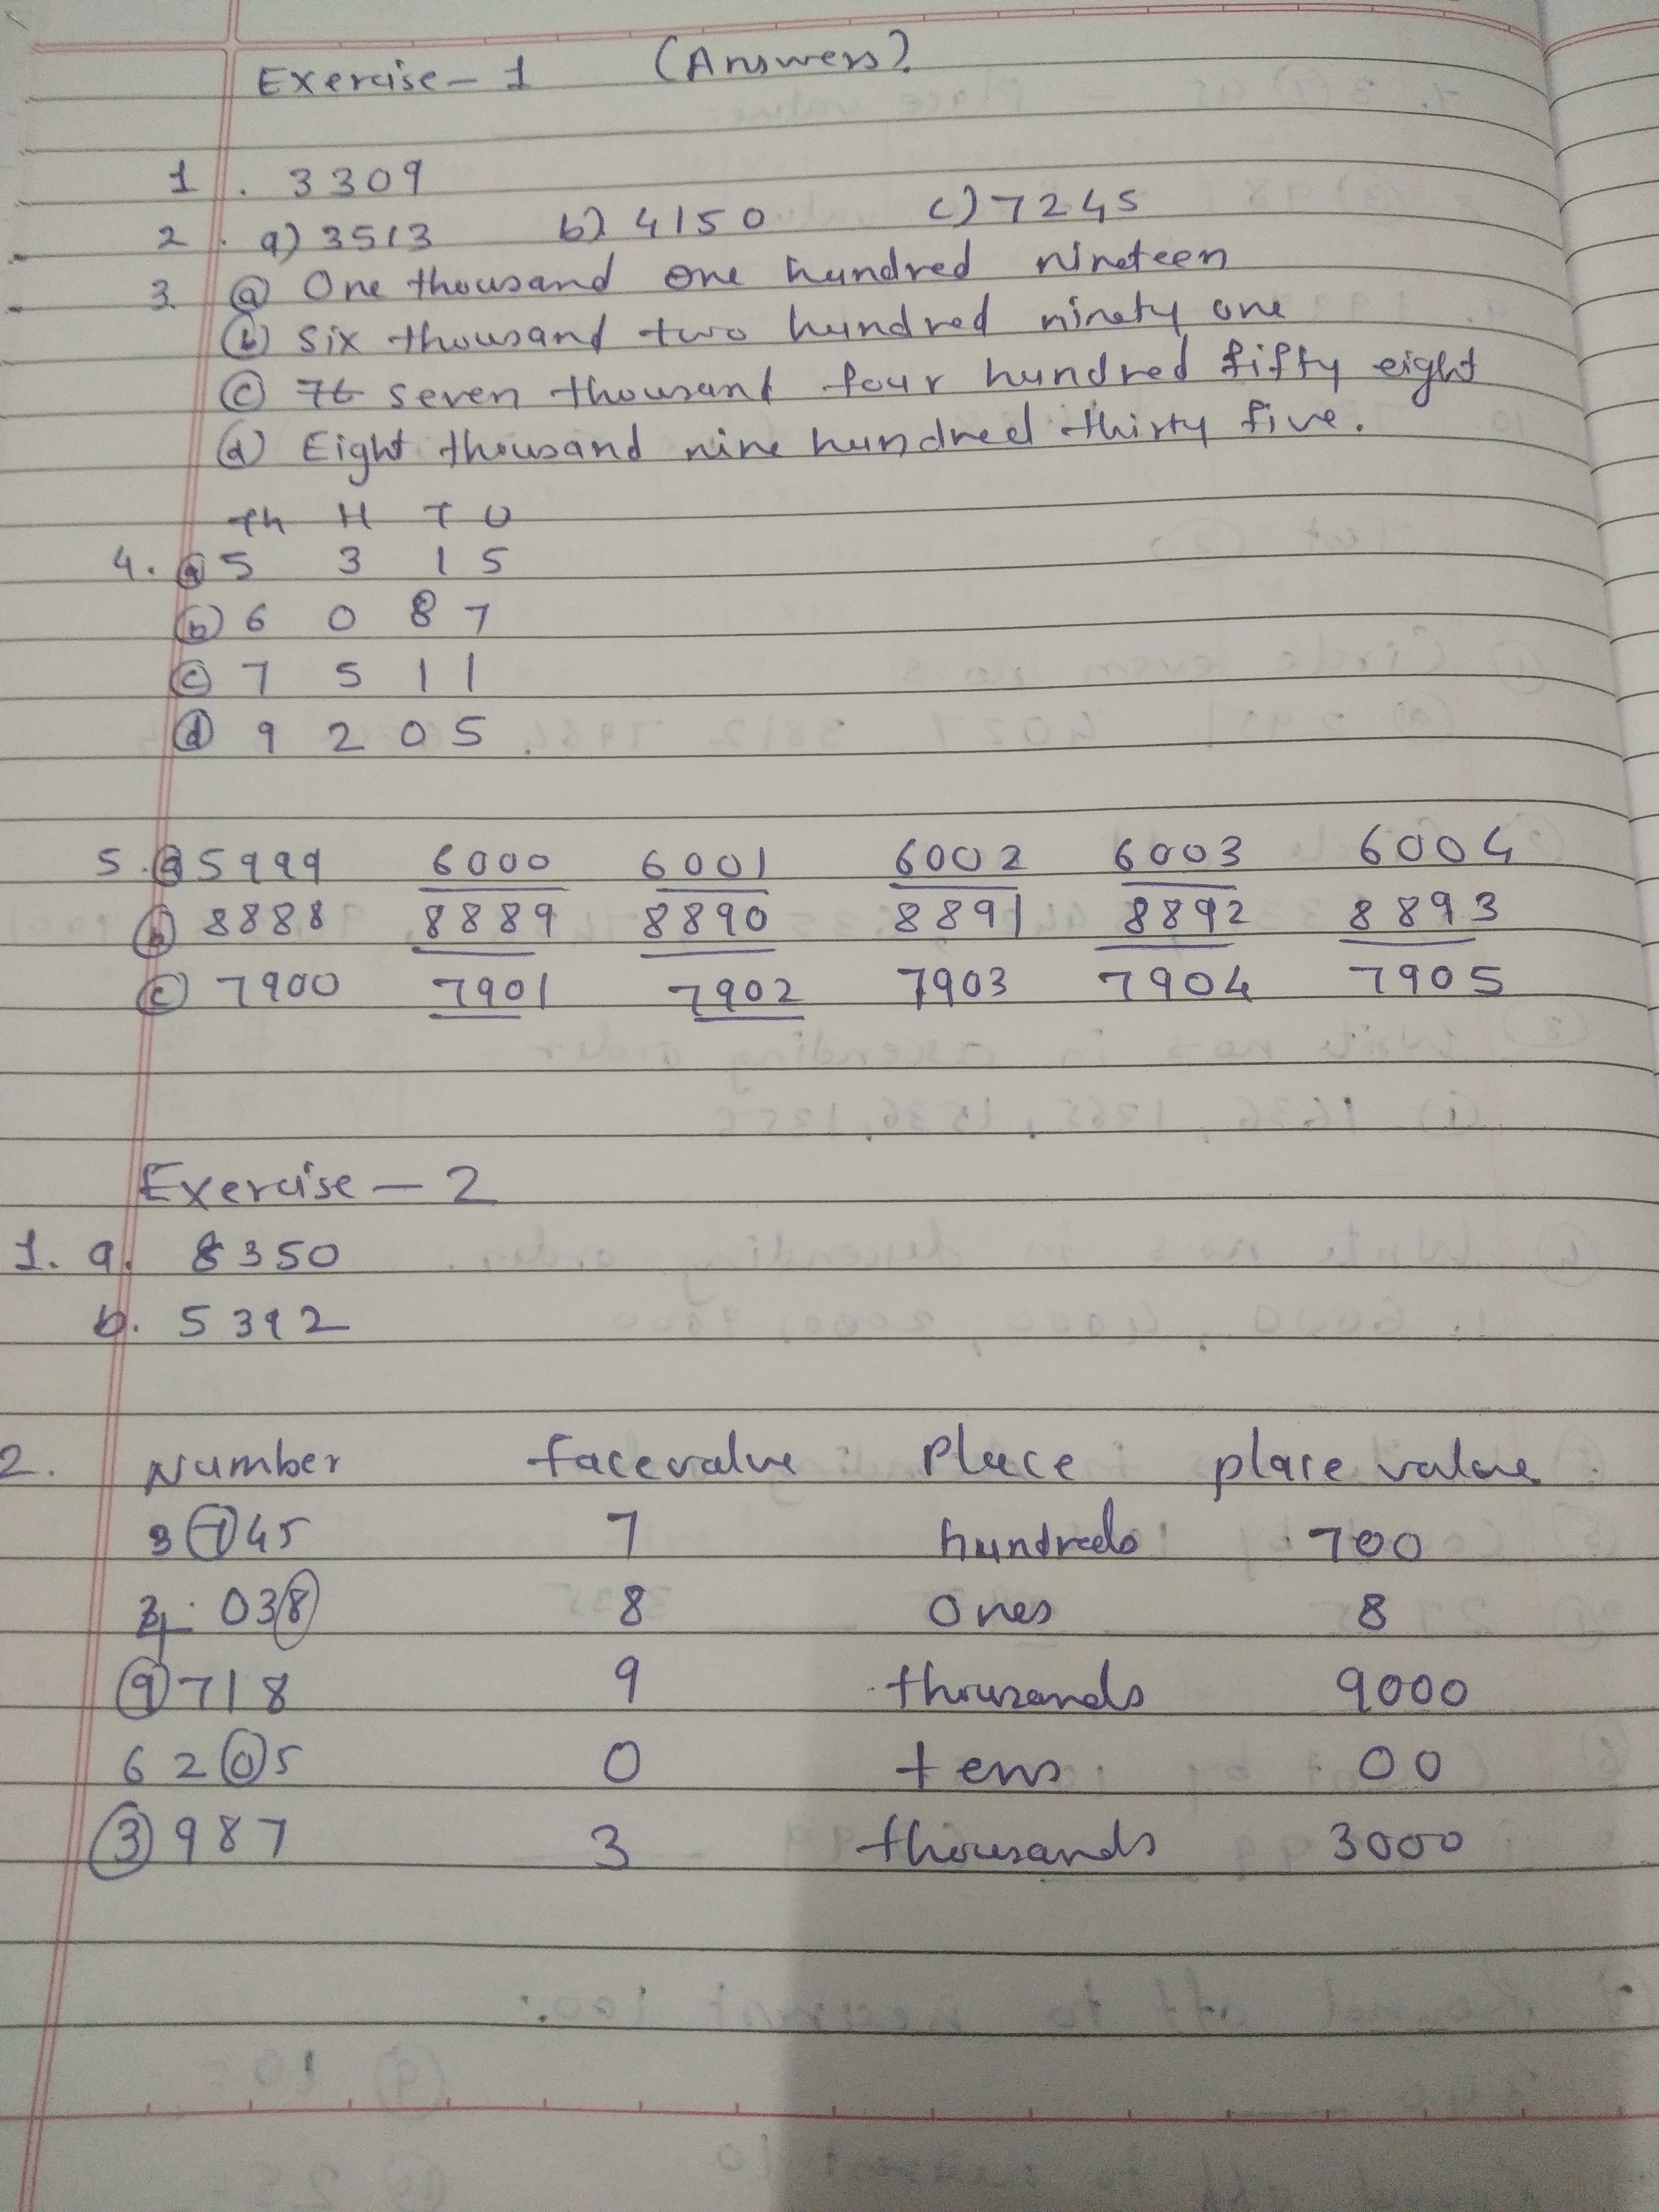 Exercise - 1 (Answers)
1. 3309
2. a) 3513 b) 4150 c) 7245
3. (a) One thousand one hundred nineteen
(b) Six thousand two hundred ninety one
(c) seven thousand four hundred fifty eight
(d) Eight thousand nine hundred thirty five.
Th H T U
4. (a) 5 3 1 5
(b) 6 0 8 7
(c) 7 5 1 1
(d) 9 2 0 5
5. (a) 5999 6000 6001 6002 6003 6004
(b) 8888 8889 8890 8891 8892 8893
(c) 7900 7901 7902 7903 7904 7905
Exercise - 2
1. a. 8350
b. 5392
2. Number face value Place place value
3745 7 hundreds 700
038 8 Ones 8
9718 9 thousands 9000
6205 0 tens 00
3987 3 thousands 3000